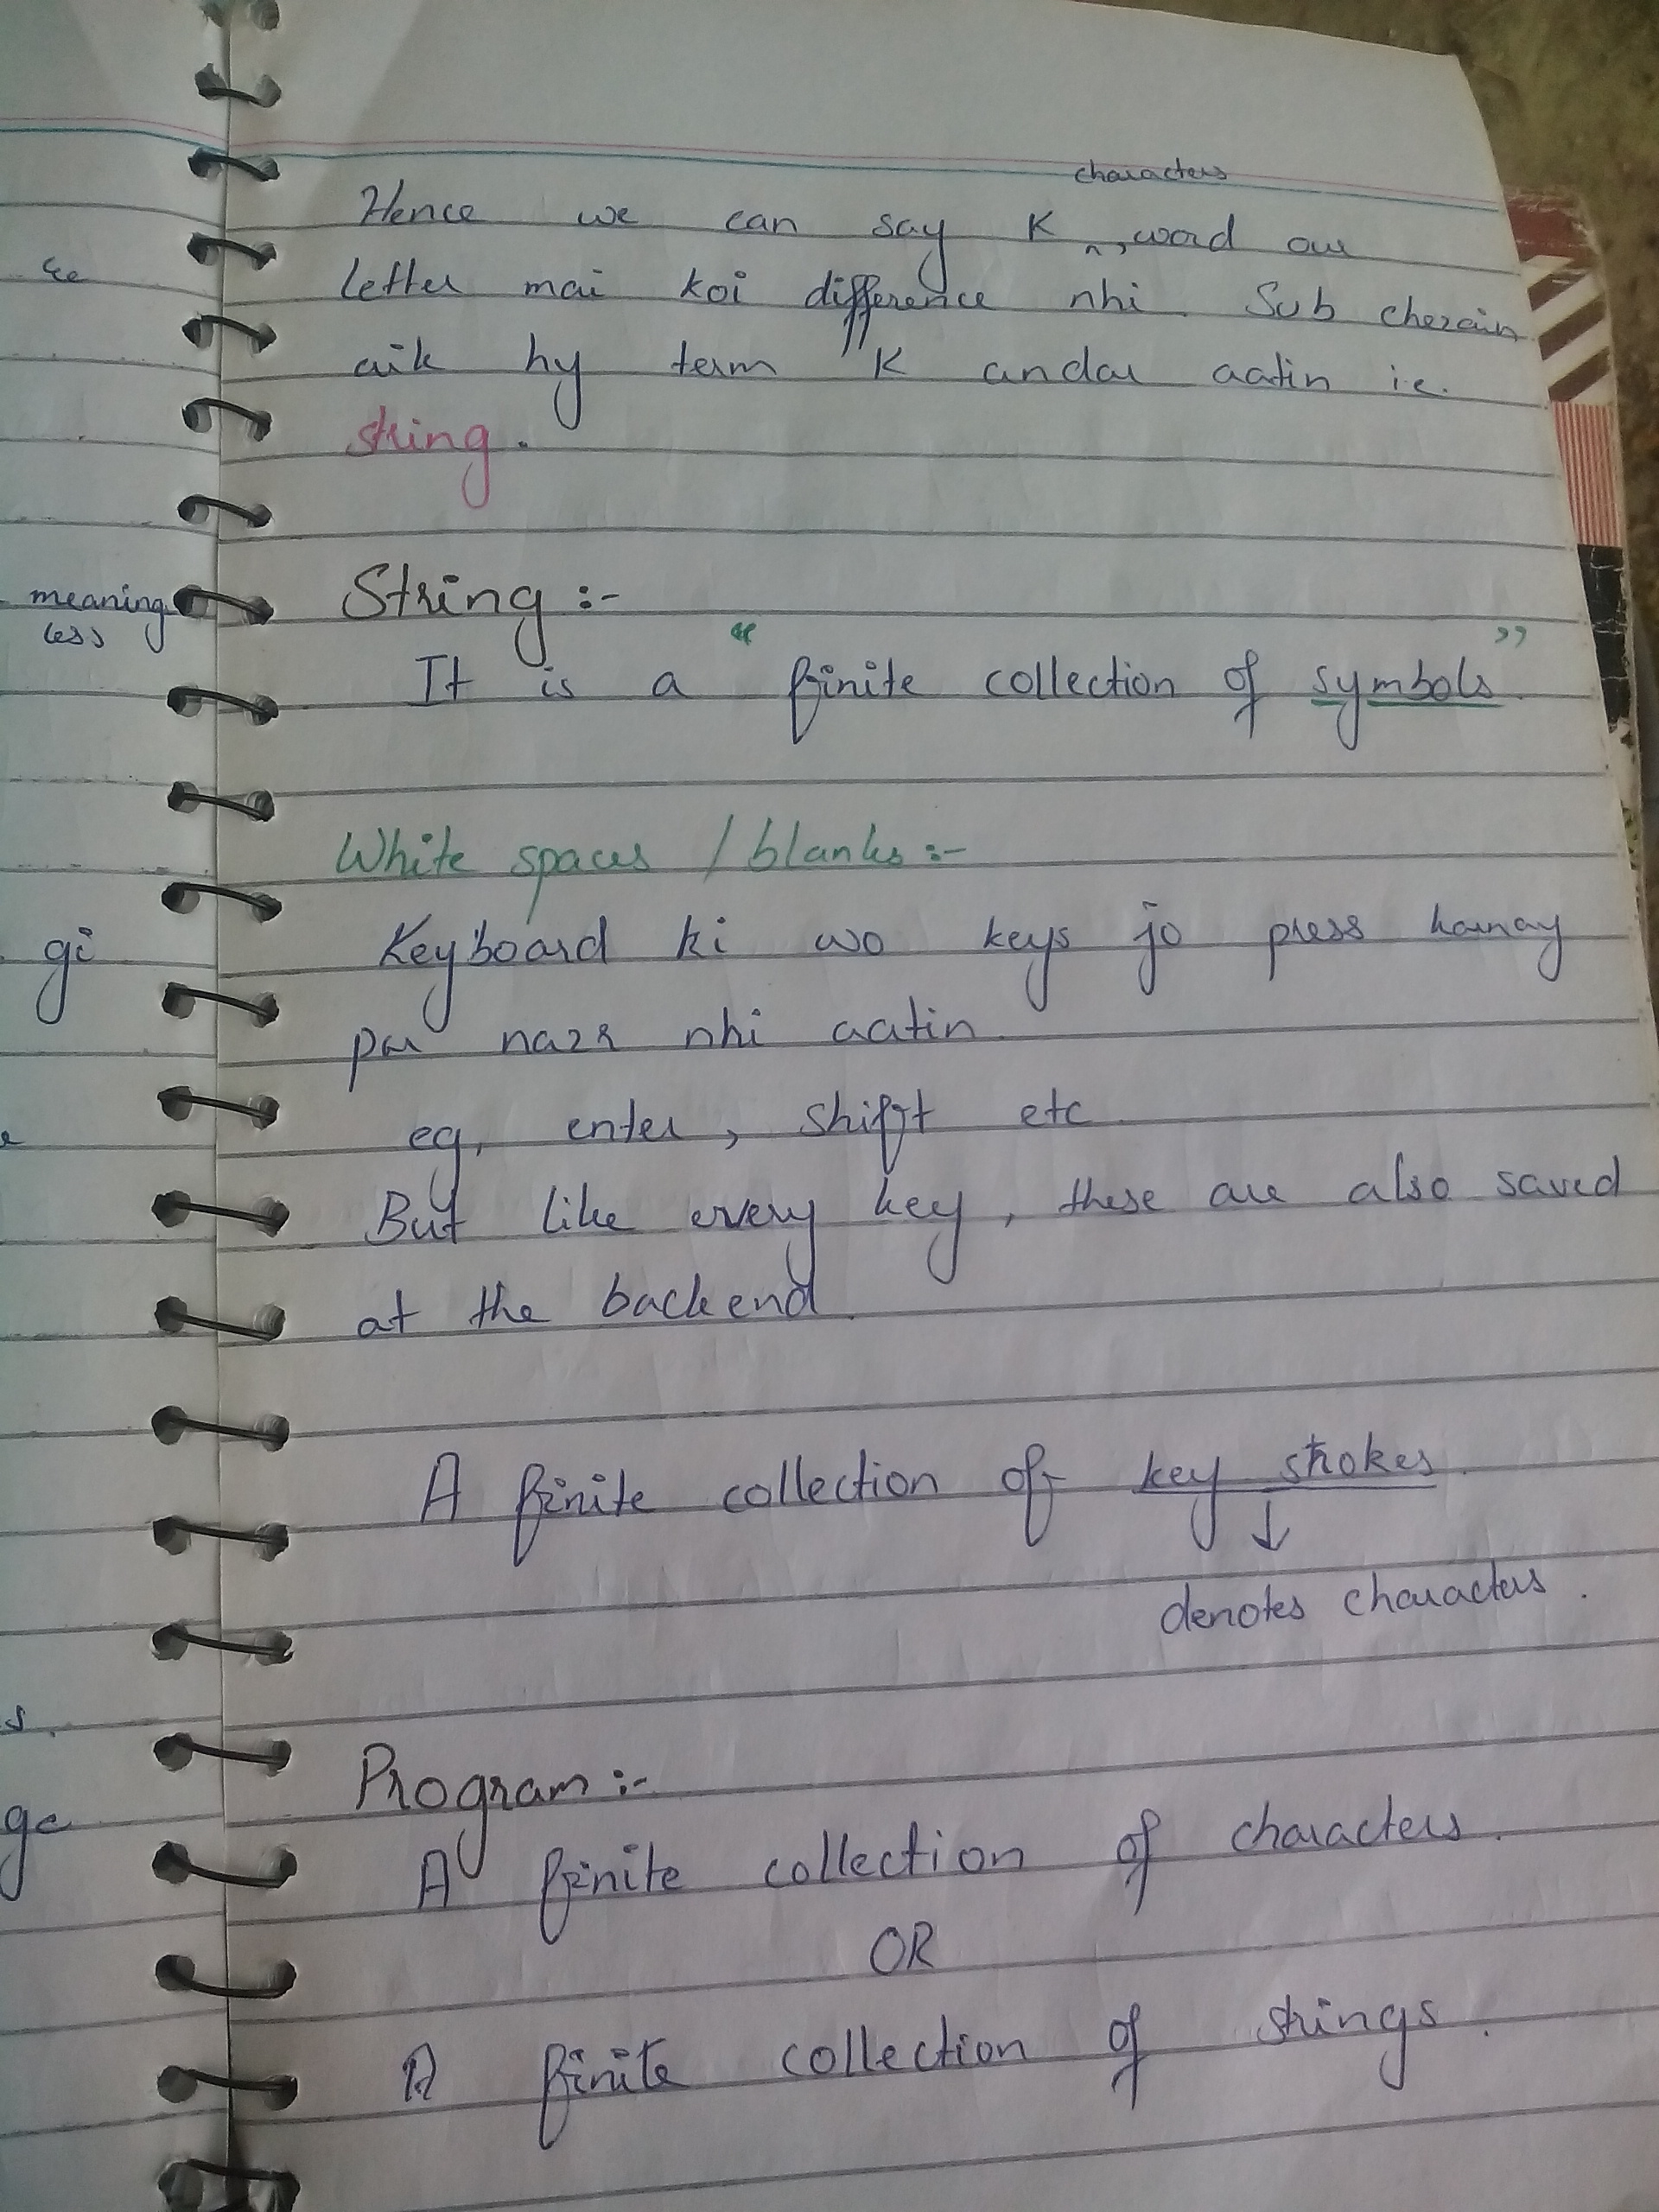 Hence we can say K characters, word aur
letter mai koi difference nhi. Sub cherain
aik hy term K andar aatin i.e.
string.
String :-
It is a “finite collection of symbols”.
White spaces / blanks :-
Keyboard ki wo keys jo press karnay
par nazr nhi aatin.
eg, enter, shift etc.
But like every key, these are also saved
at the backend.
A finite collection of key strokes.
↓
denotes characters.
Program :-
A finite collection of characters.
OR
A finite collection of strings.
meaning
less
gi